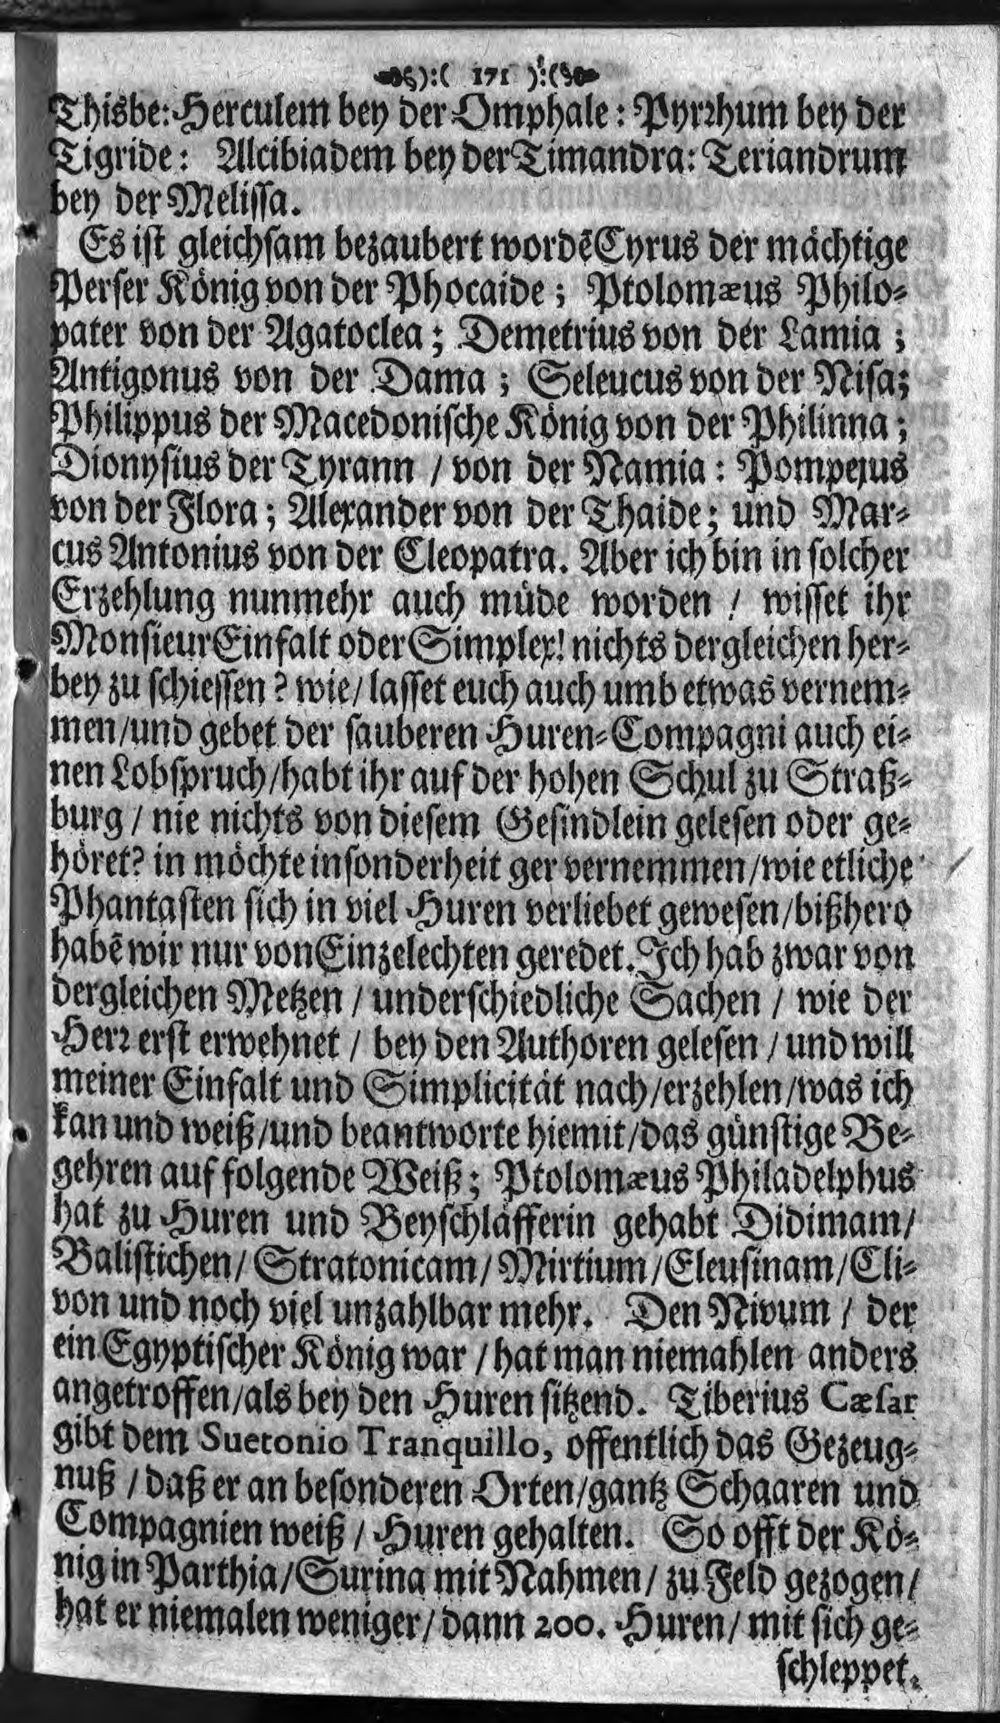 ):( 171 ):(
Thisbe: Herculem bey der Omphale: Pyrrhum bey der
Tigride: Alcibiadem bey der Timandra: Teriandrum
bey der Melissa.
Es ist gleichsam bezaubert wordẽ Cyrus der mächtige
Perser König von der Phocaide; Ptolomæus Philo-
pater von der Agatoclea; Demetrius von der Lamia;
Antigonus von der Dama; Seleucus von der Nisa;
Philippus der Macedonische König von der Philinna;
Dionysius der Tyrann / von der Namia: Pompejus
von der Flora; Alexander von der Thaide; und Mar-
cus Antonius von der Cleopatra. Aber ich bin in solcher
Erzehlung nunmehr auch müde worden / wisset ihr
Monsieur Einfalt oder Simplex! nichts dergleichen her-
bey zu schiessen? wie/ lasset euch auch umb etwas vernem-
men/und gebet der sauberen Huren-Compagni auch ei-
nen Lobspruch/habt ihr auf der hohen Schul zu Straß-
burg / nie nichts von diesem Gesindlein gelesen oder ge-
höret? in möchte insonderheit ger vernemmen/wie etliche
Phantasten sich in viel Huren verliebet gewesen/bißhero
habẽ wir nur von Einzelechten geredet. Ich hab zwar von
dergleichen Metzen / underschiedliche Sachen / wie der
Herr erst erwehnet / bey den Authoren gelesen / und will
meiner Einfalt und Simplicität nach/erzehlen/was ich
kan und weiß/und beantworte hiemit/das günstige Be-
gehren auf folgende Weiß; Ptolomæus Philadelphus
hat zu Huren und Beyschläfferin gehabt Didimam/
Balistichen/ Stratonicam/ Mirtium/Eleusinam/Cli-
von und noch viel unzahlbar mehr. Den Nivum / der
ein Egyptischer König war / hat man niemahlen anders
angetroffen/als bey den Huren sitzend. Tiberius Cæsar
gibt dem Suetonio Tranquillo, offentlich das Gezeug-
nuß / daß er an besonderen Orten/gantz Schaaren und
Compagnien weiß / Huren gehalten. So offt der Kö-
nig in Parthia/Surina mit Nahmen/ zu Feld gezogen/
hat er niemalen weniger/ dann 200. Huren/ mit sich ge-
schleppet.